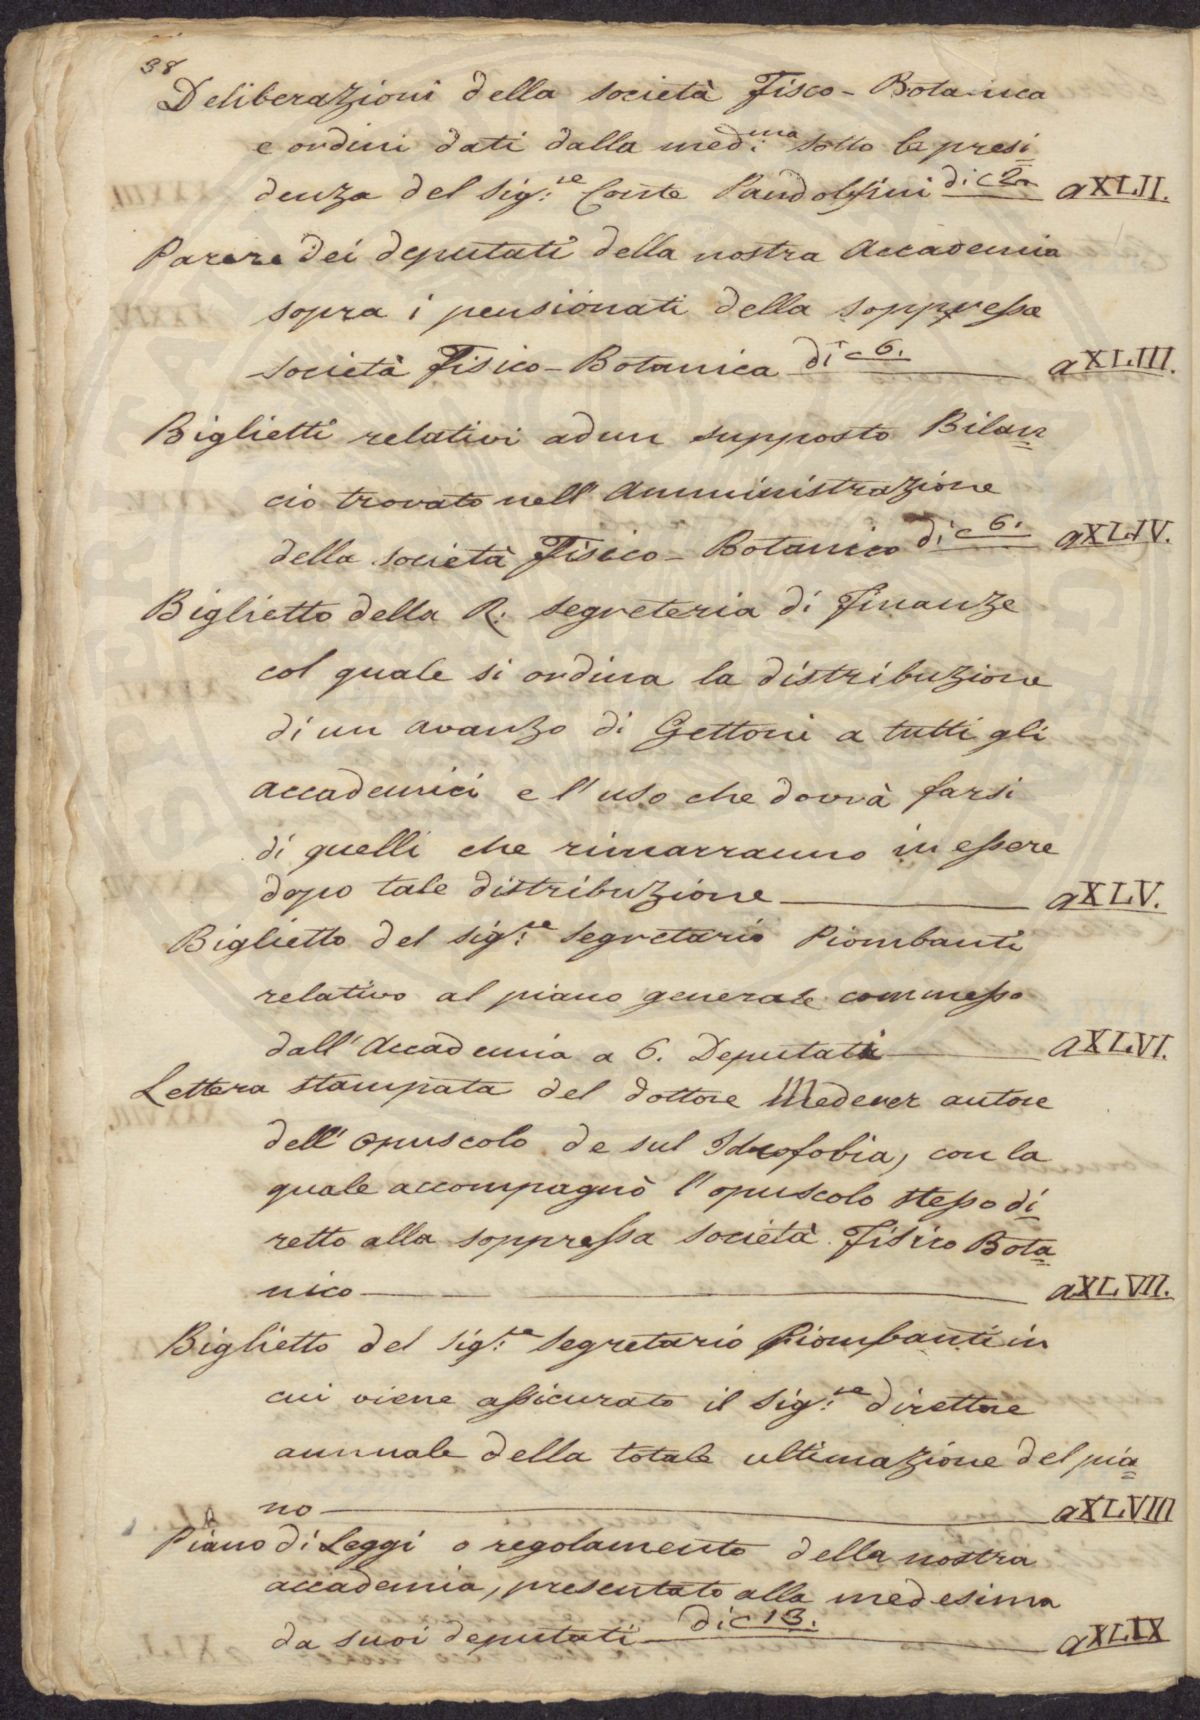 38
Deliberazioni della società Fisco-Botanica
e ordini dati dalla med:ma sotto la presi=
denza del Sig:re Conte Pandolfini di c 2. aXLII.
Parere dei deputati della nostra Accademia
sopra i pensionati della soppressa
società Fisico-Botanica di c 6. aXLIII.
Biglietti relativi adun supposto Bilan=
cio trovato nell'Amministrazione
della società Fisico-Botanica di c 6. aXLIV.
Biglietto della R: segreteria di Finanze
col quale si ordina la distribuzione
di un avanzo di Gettoni a tutti gli
accademici e l'uso che dovrà farsi
di quelli che rimarranno in essere
dopo tale distribuzione aXLV.
Biglietto del sig:re segretario Piombanti
relativo al piano generale commesso
dall'Accademia a 6. Deputati aXLVI.
Lettera stampata del dottore Mederer autore
dell'opuscolo de sul Idrofobia, con la
quale accompagnò l'opuscolo stesso di=
retto alla soppressa società Fisico Bota=
nico aXLVII.
Biglietto del sig:re segretario Piombanti in
cui viene assicurato il sig:re direttore
annuale della totale ultimazione del pia=
no aXLVIII
Piano di Leggi o regolamento della nostra
accademia, presentato alla medesima
da suoi deputati di c 13. aXLIX